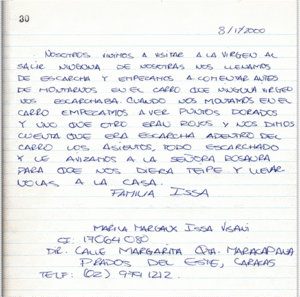 30
8/1/2000
NOSOTROS VINIMOS A VISITAR A LA VIRGEN AL
SALIR NINGUNA DE NOSOTRAS NOS LLENAMOS
DE ESCARCHA Y EMPEZAMOS A COMENTAR ANTES
DE MONTARNOS EN EL CARRO QUE NINGUNA VIRGEN
NOS ESCARCHABA. CUANDO NOS MONTAMOS EN EL
CARRO EMPEZAMOS A VER PUNTOS DORADOS
Y UNO QUE OTRO ERAN ROJOS Y NOS DIMOS
CUENTA QUE ERA ESCARCHA ADENTRO DEL
CARRO LOS ASIENTOS, TODO ESCARCHADO
Y LE AVISAMOS A LA SEÑORA ROSAURA
PARA QUE NOS DIERA TEIPE Y LLEVAR
NOLAS A LA CASA.
FAMILIA ISSA
MARIA MARGAUX ISSA
CI: 17064080
DIR. CALLE MARGARITA QTA. MARACAPANA
PRADOS DEL ESTE, CARACAS
TELF: (02) 979 1212.